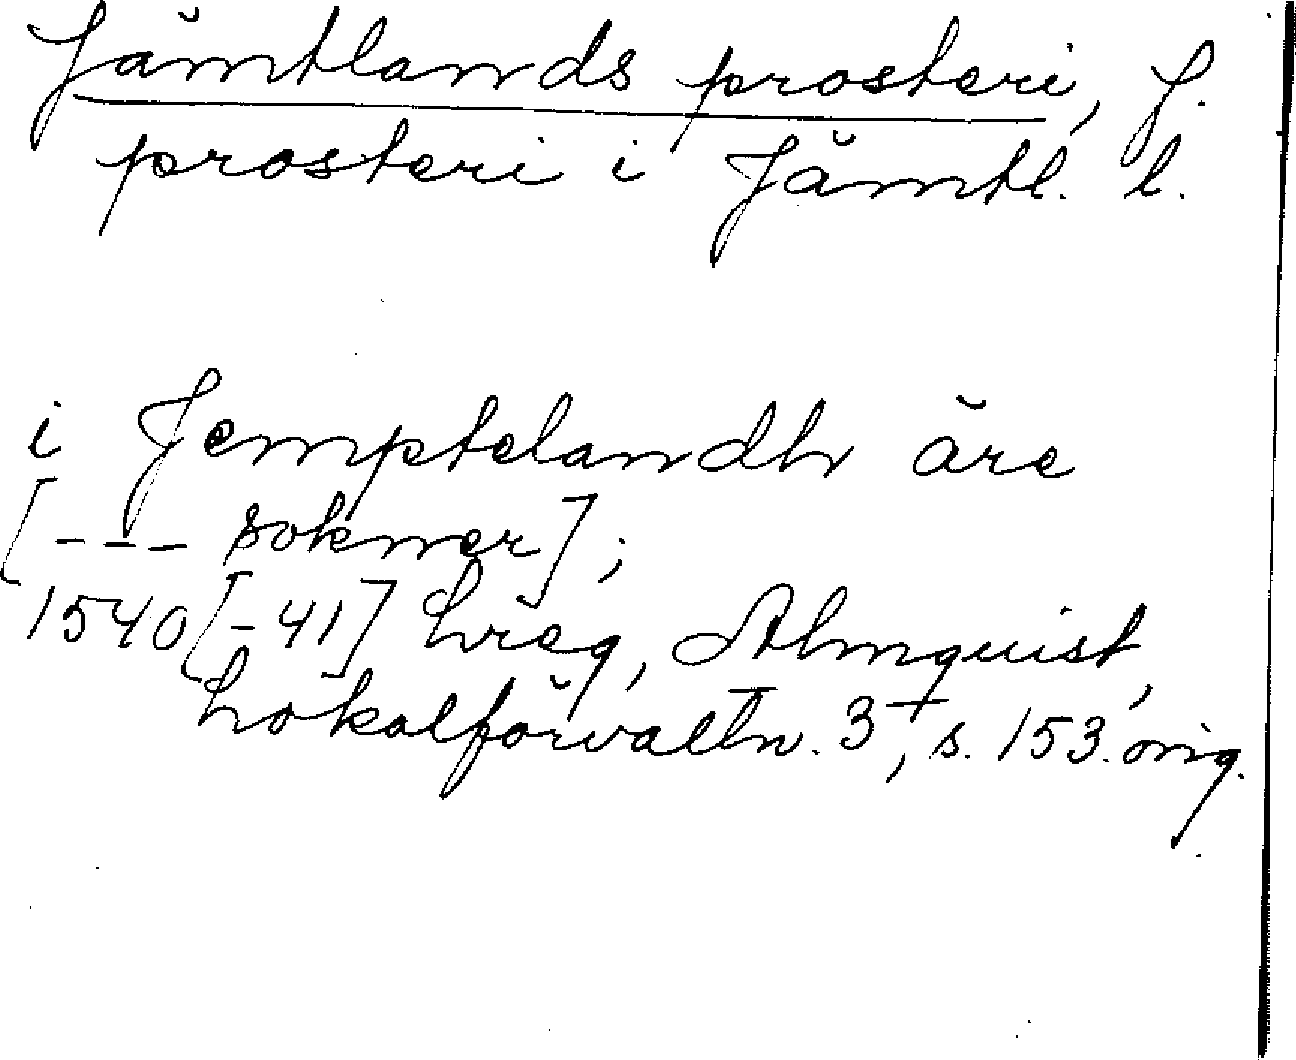 Jämtlands prosteri, J.
prosteri i Jämtl. l.
i Jemptelandh äre
[--- sokner];
1540[-41] Lreg, Almquist,
Lokalförvaltn. 3+, s. 153. orig.